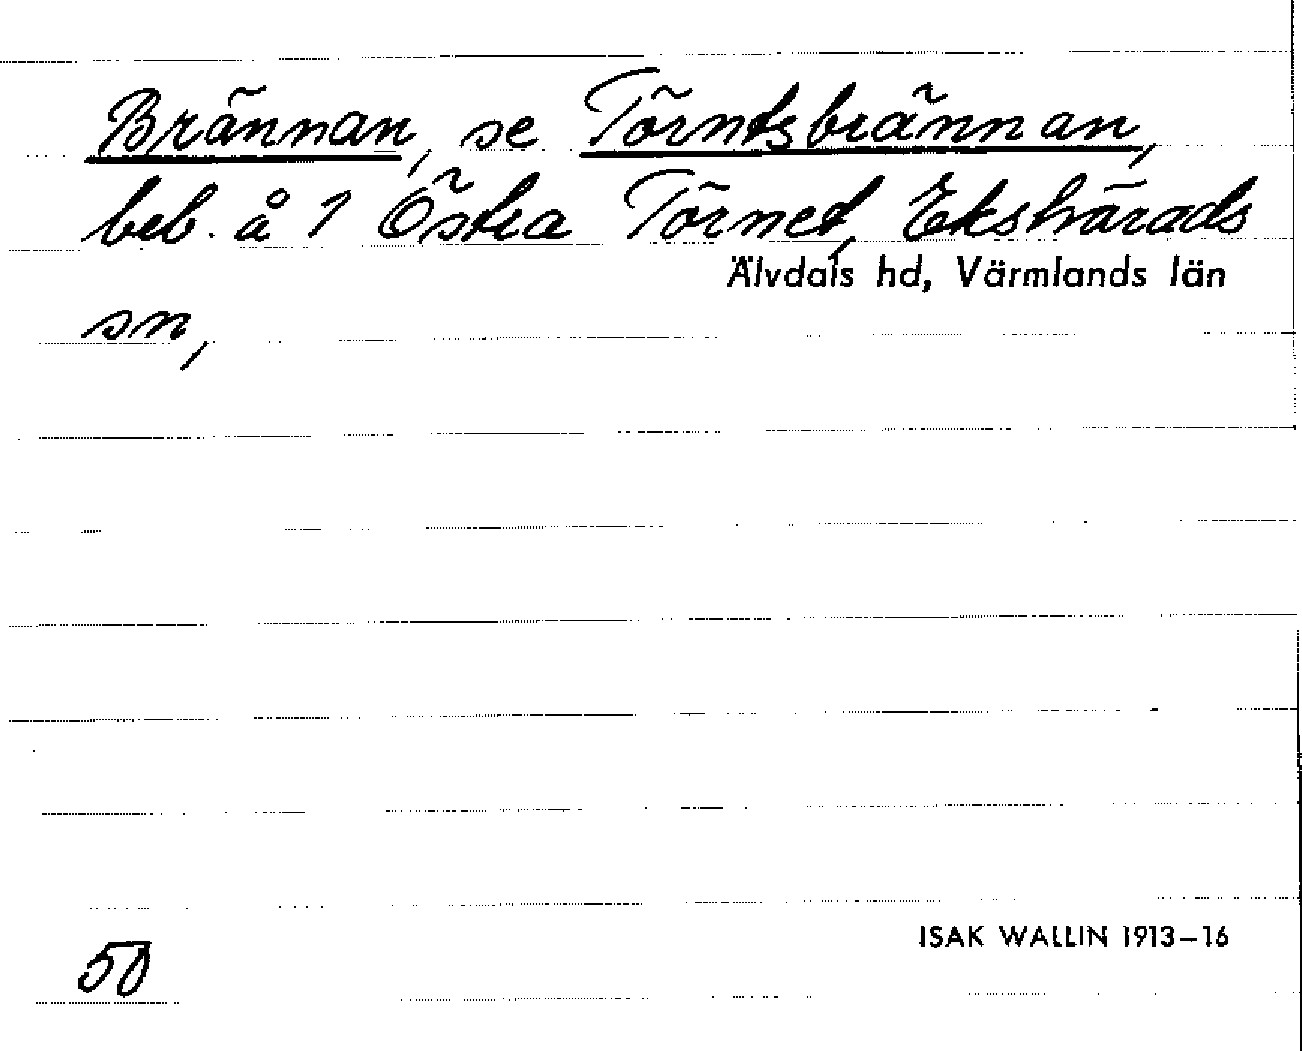 Brännan, se Törntsbrännan,
beb. å 1 Östra Törnet, Ekshärads
Älvdals hd, Värmlands län
sn,
50
ISAK WALLIN 1913–16